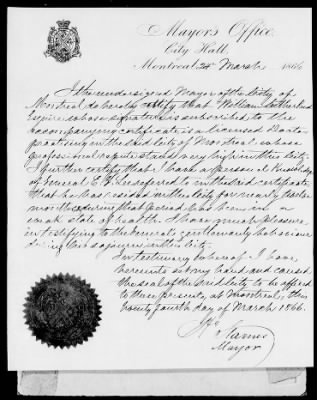 Mayor's Office.
City Hall.
Montreal 24 March 1866
I the undersigned Mayor of the City of
Montreal do hereby certify that William Sutherland
Esquire whose signature is subscribed to the
accompanying certificate is a licensed Doctor
practising in the said City of Montreal whose
professional repute stands very high in this City.
I further certify that I have a personal knowledge
of General E. referred to in the said certificate
that he has resided in this City for nearly twelve
months during that period has been in a
weak state of health. I have much pleasure
in testifying to the General's gentlemanly behaviour
during his sojourn in this City.
In testimony whereof I have
hereunto set my hand and caused
the seal of the said City to be affixed
to these presents, at Montreal, this
twenty fourth day of March 1866.
Starnes
Mayor